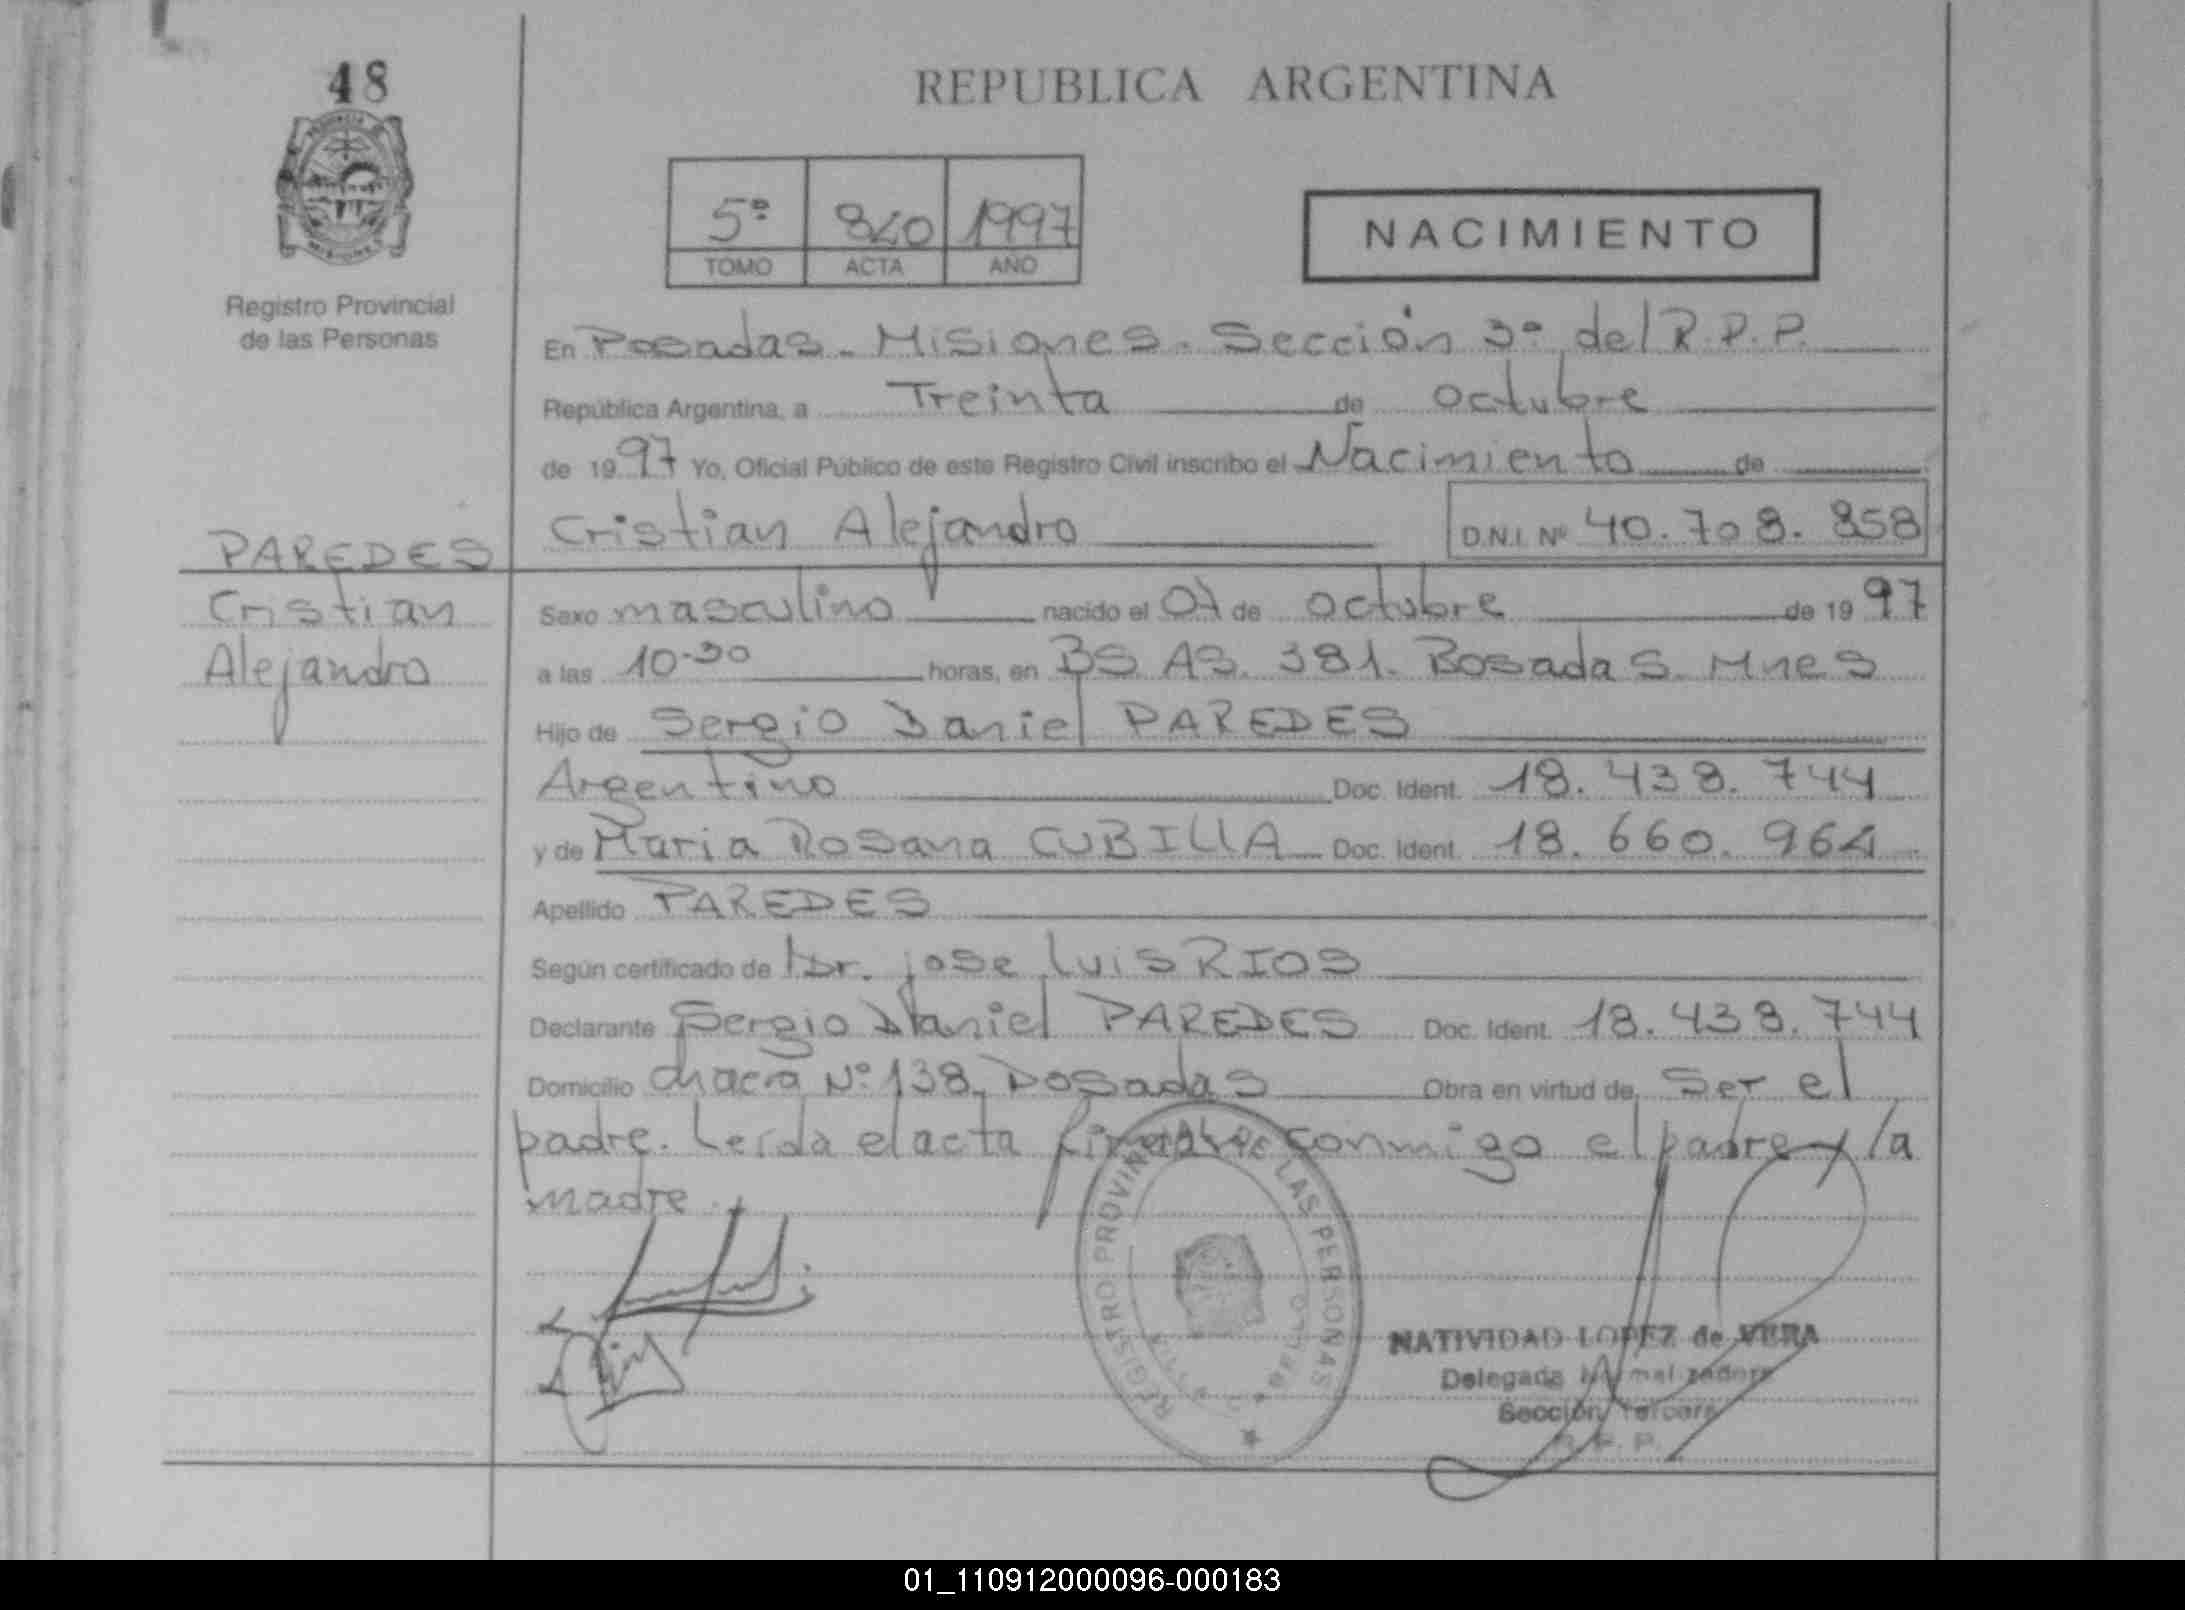 48
REPUBLICA ARGENTINA
5º 840 1997
TOMO ACTA AÑO
NACIMIENTO
Registro Provincial
de las Personas
En Posadas - Misiones - Sección 3º del R.P.P.
República Argentina, a Treinta de octubre
de 1997 Yo, Oficial Público de este Registro Civil inscribo el Nacimiento de
Cristian Alejandro D.N.I. Nº 40.708.858
PAREDES
Cristian
Alejandro
Sexo masculino nacido el 07 de octubre de 1997
a las 10-30 horas, en BS AS. 381. Posadas. Mnes
Hijo de Sergio Daniel PAREDES
Argentino Doc. Ident. 18.438.744
y de Maria Rosana CUBILLA Doc. Ident. 18.660.964
Apellido PAREDES
Según certificado de Dr. jose Luis RIOS
Declarante Sergio Daniel PAREDES Doc. Ident. 18.438.744
Domicilio chacra Nº 138 Posadas Obra en virtud de Ser el
padre. Leída el acta firman conmigo el padre y la
madre.
REGISTRO PROVINCIAL DE LAS PERSONAS
NATIVIDAD LOPEZ de VERA
Delegada Normalizadora
Sección Tercera
R. P. P.
01_110912000096-000183